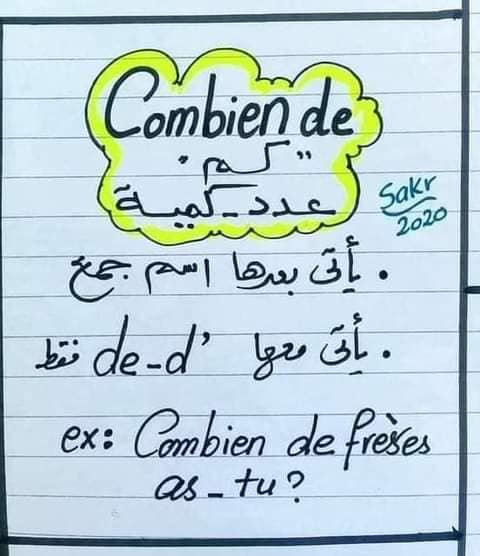 Combien de
"كم"
عدد - كمية
Sakr
2020
. يأتى بعدها اسم جمع
. يأتى معها de - d' فقط
ex: Combien de frères
as - tu ?